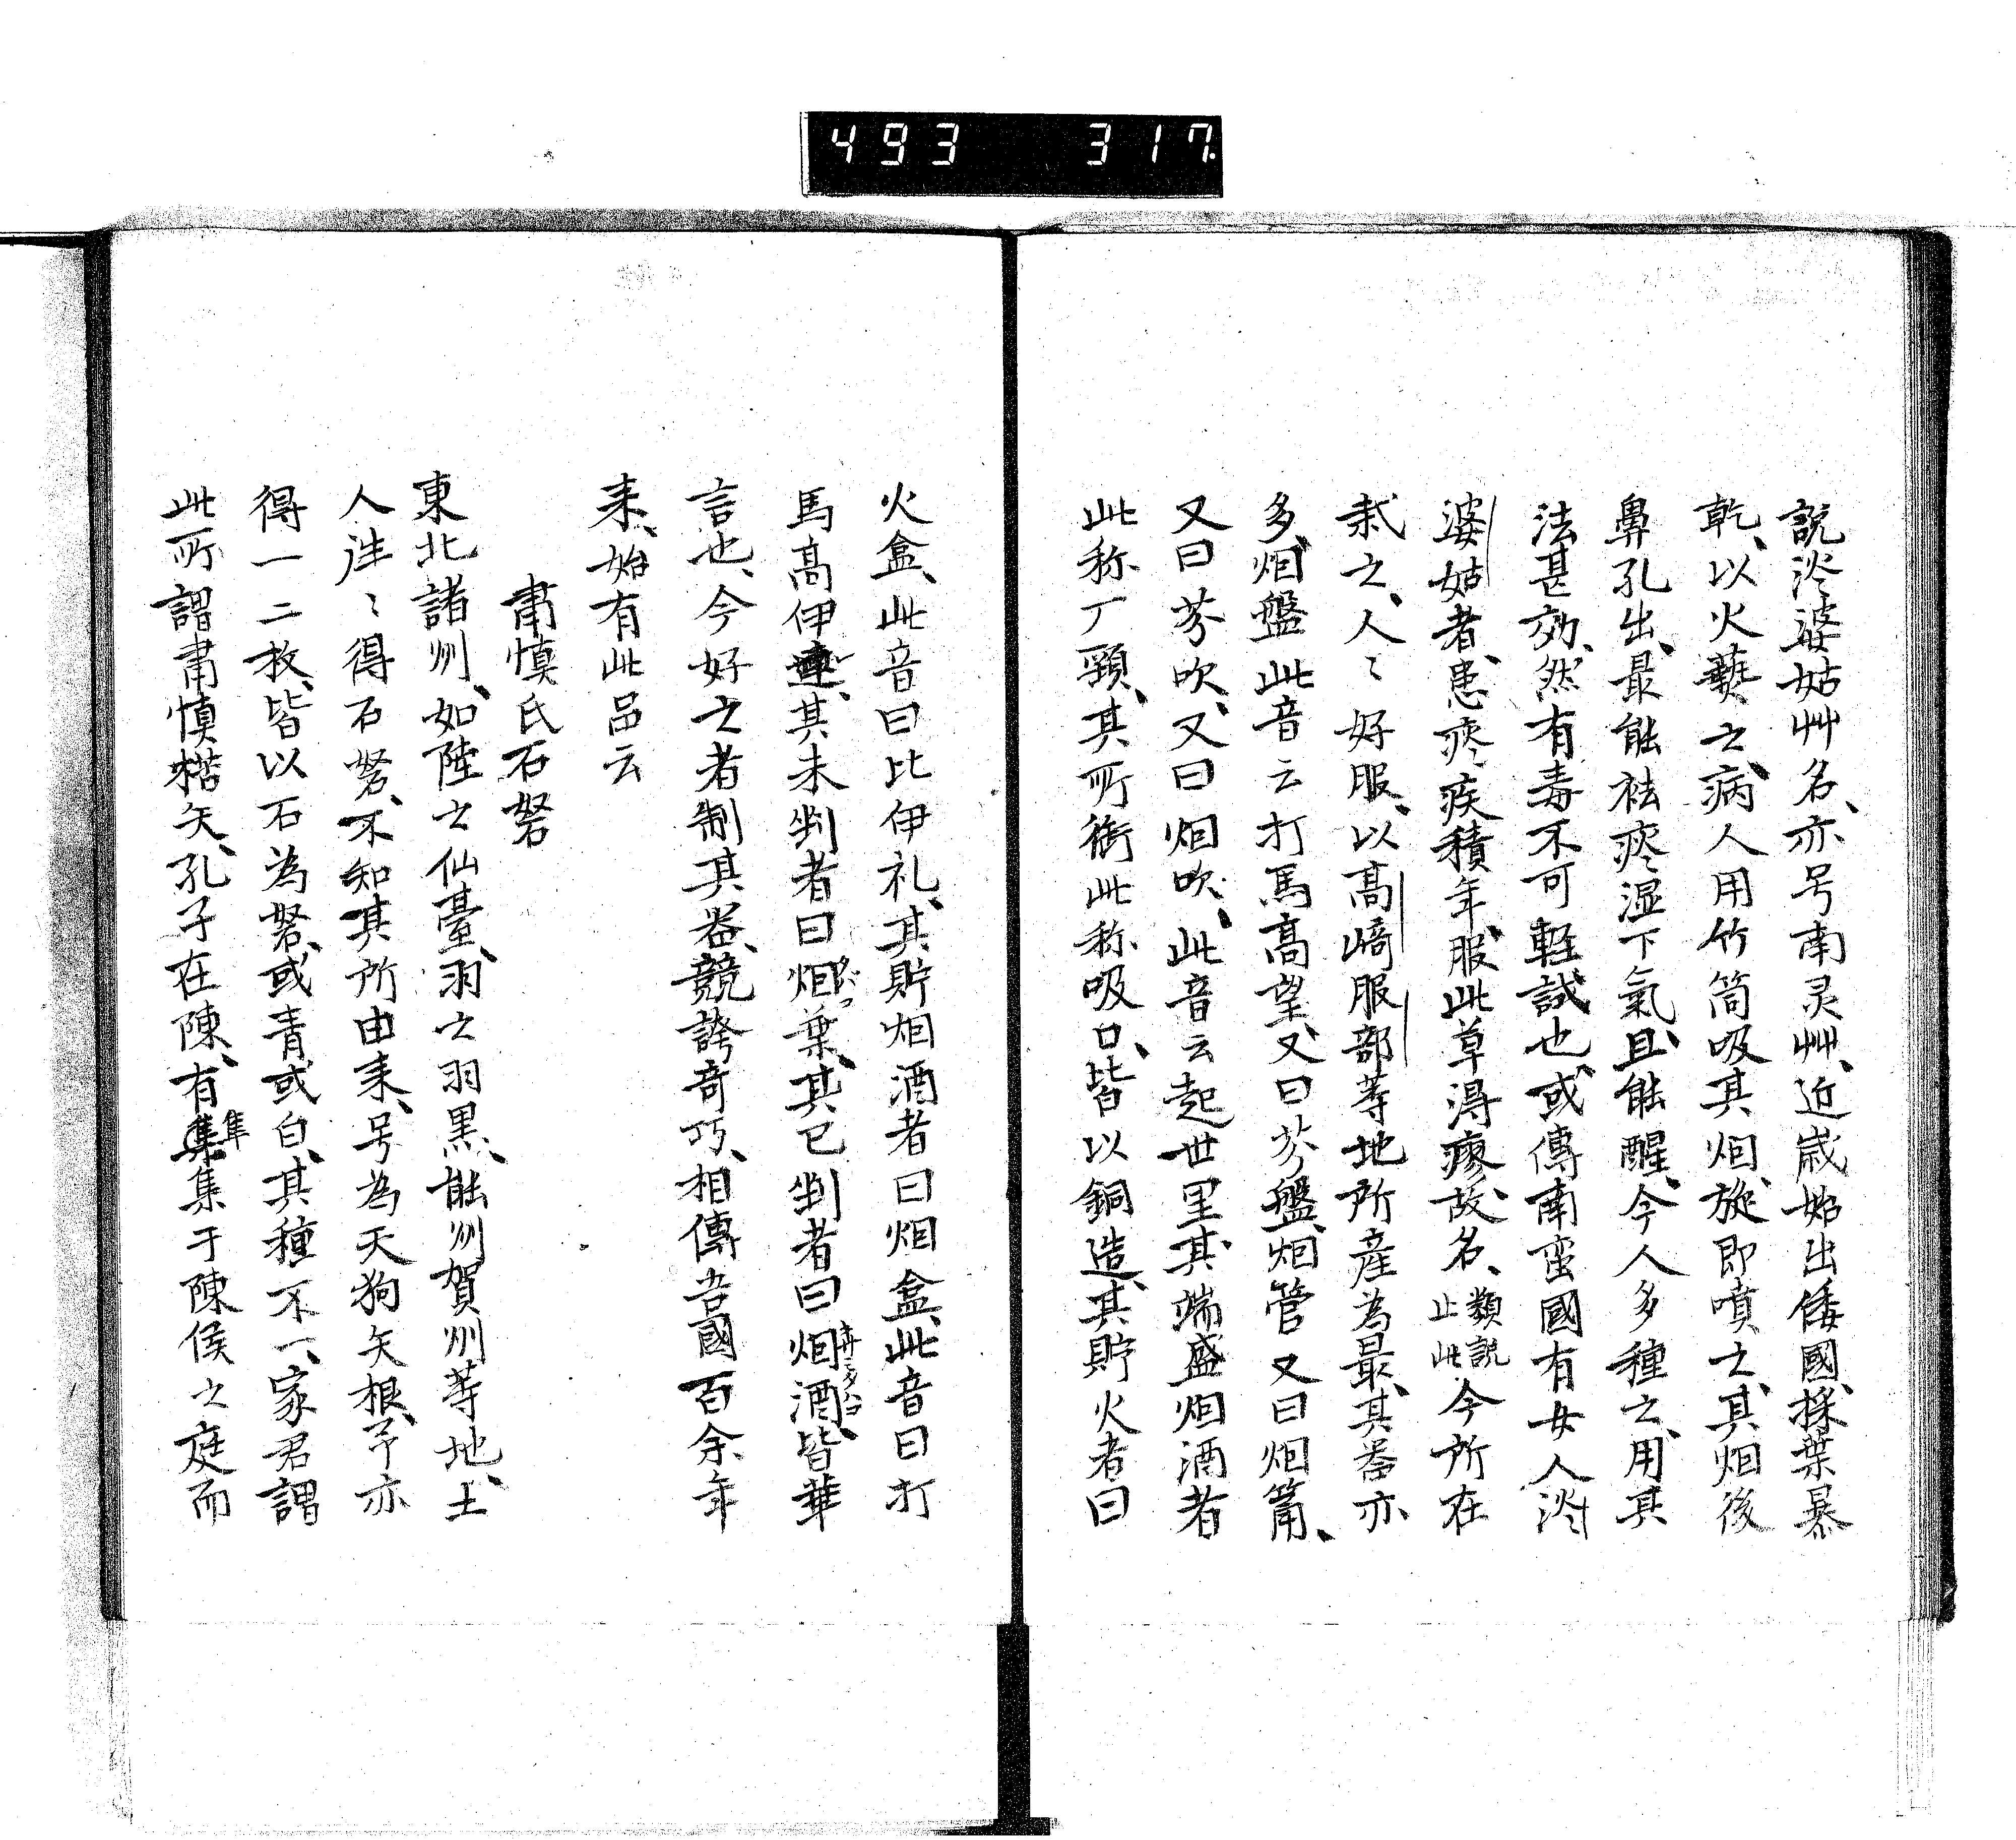 493 317
説淡婆姑艸名、亦号南灵艸、近歳始出倭國、採葉暴
乾、以火爇之、病人用竹筒吸其烟、旋即噴之、其烟後
鼻孔出、最能祛痰湿下氣、且能醒、今人多種之、用其
法甚効、然有毒不可軽試也、或傳南蛮國有女人淡
婆姑者、患痰疾積年、服此草得瘳、故名、類説止此 今所在
栽之、人〻好服、以高﨑服部等地所産為最、其器亦
多、烟盤此音云打馬高望、又曰芬盤、烟管又曰烟筩、
又曰芬吹、又曰烟吹、此音云起世里、其端盛烟酒者
此称丁頸、其所銜此称吸口、皆以銅造、其貯火者曰
火盒、此音曰比伊礼、其貯烟酒者曰烟盒、此音曰打
馬高伊連、其未剉者曰烟葉、其已剉者曰烟酒、皆華
言也、今好之者制其器、競誇奇巧、相傳吾國百余年
来、始有此品云
肅慎氏石砮
東北諸州、如陸之仙臺、羽之羽黒、能州賀州等地、土
人往〻得石砮、不知其所由来、号為天狗矢根、予亦
得一二枚、皆以石為砮、或青或白、其種不一、家君謂
此所謂肅慎楛矢、孔子在陳、有隼集于陳侯之庭而